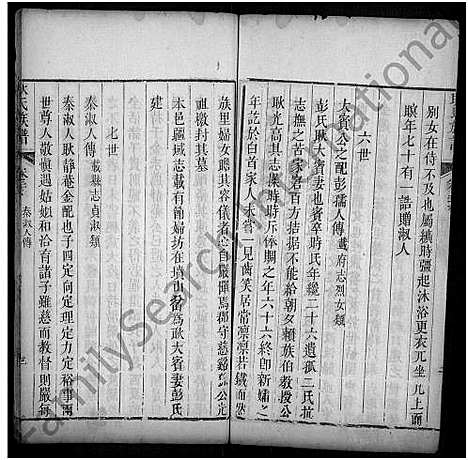 別女在侍不及也屬擴時彊起沐浴更衣兀坐几上而
暝年七十有一誥贈淑人
六世
大賓公之配彭孺人傳載府志烈女類
彭氏耿大賓妻也賓卒時氏年纔二十六遺孤二氏抗
志撫之苦家窘百方拮据不能給朝夕賴族伯教授公
耿光高其志操時時斥俸賙之年六十六終即新孀之
年訖於白首家人未嘗一見齒笑居常凛凛若鐵而然
族里婦女瞻其容儀者自嚴憚焉郡守慈谿馮公允
祖檄封其墓
本邑麗域志載有節婦坊在墳山街爲耿大賓妻彭氏
建
七世
秦淑人傳載縣志貞淑類
秦淑人耿靜菴金配也子四定向定理定力定裕事兩
世尊人敬與遇姑姐和洽育諸子雖慈而教督則嚴每
耿氏族譜
秦淑人傳
FamilySearch International